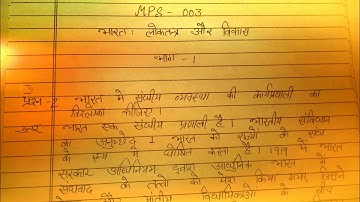 MPS - 003
भारत: लोकतन्त्र और विकास
भाग - 1
प्रश्न - भारत में संघीय व्यवस्था की कार्यप्रणाली का
विश्लेषण कीजिए।
उत्तर भारत एक संघीय प्रणाली है। भारतीय संविधान
का अनुच्छेद 1 भारत को राज्यों के संघ
के रूप में घोषित करता है। 1919 में भारत
सरकार अधिनियम द्वारा आधुनिक भारत में
संघवाद के तत्वों को किया गया, जिसने
और प्रान्तीय के बीच